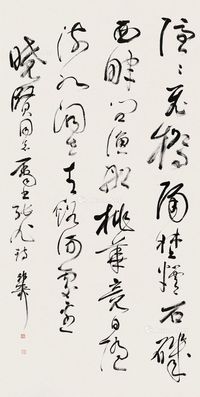 隱〻飛橋隔埜煙石磯
西畔問漁船桃華竟日隨
流水洞在青谿何處邊
曉賢同志屬書張旭詩